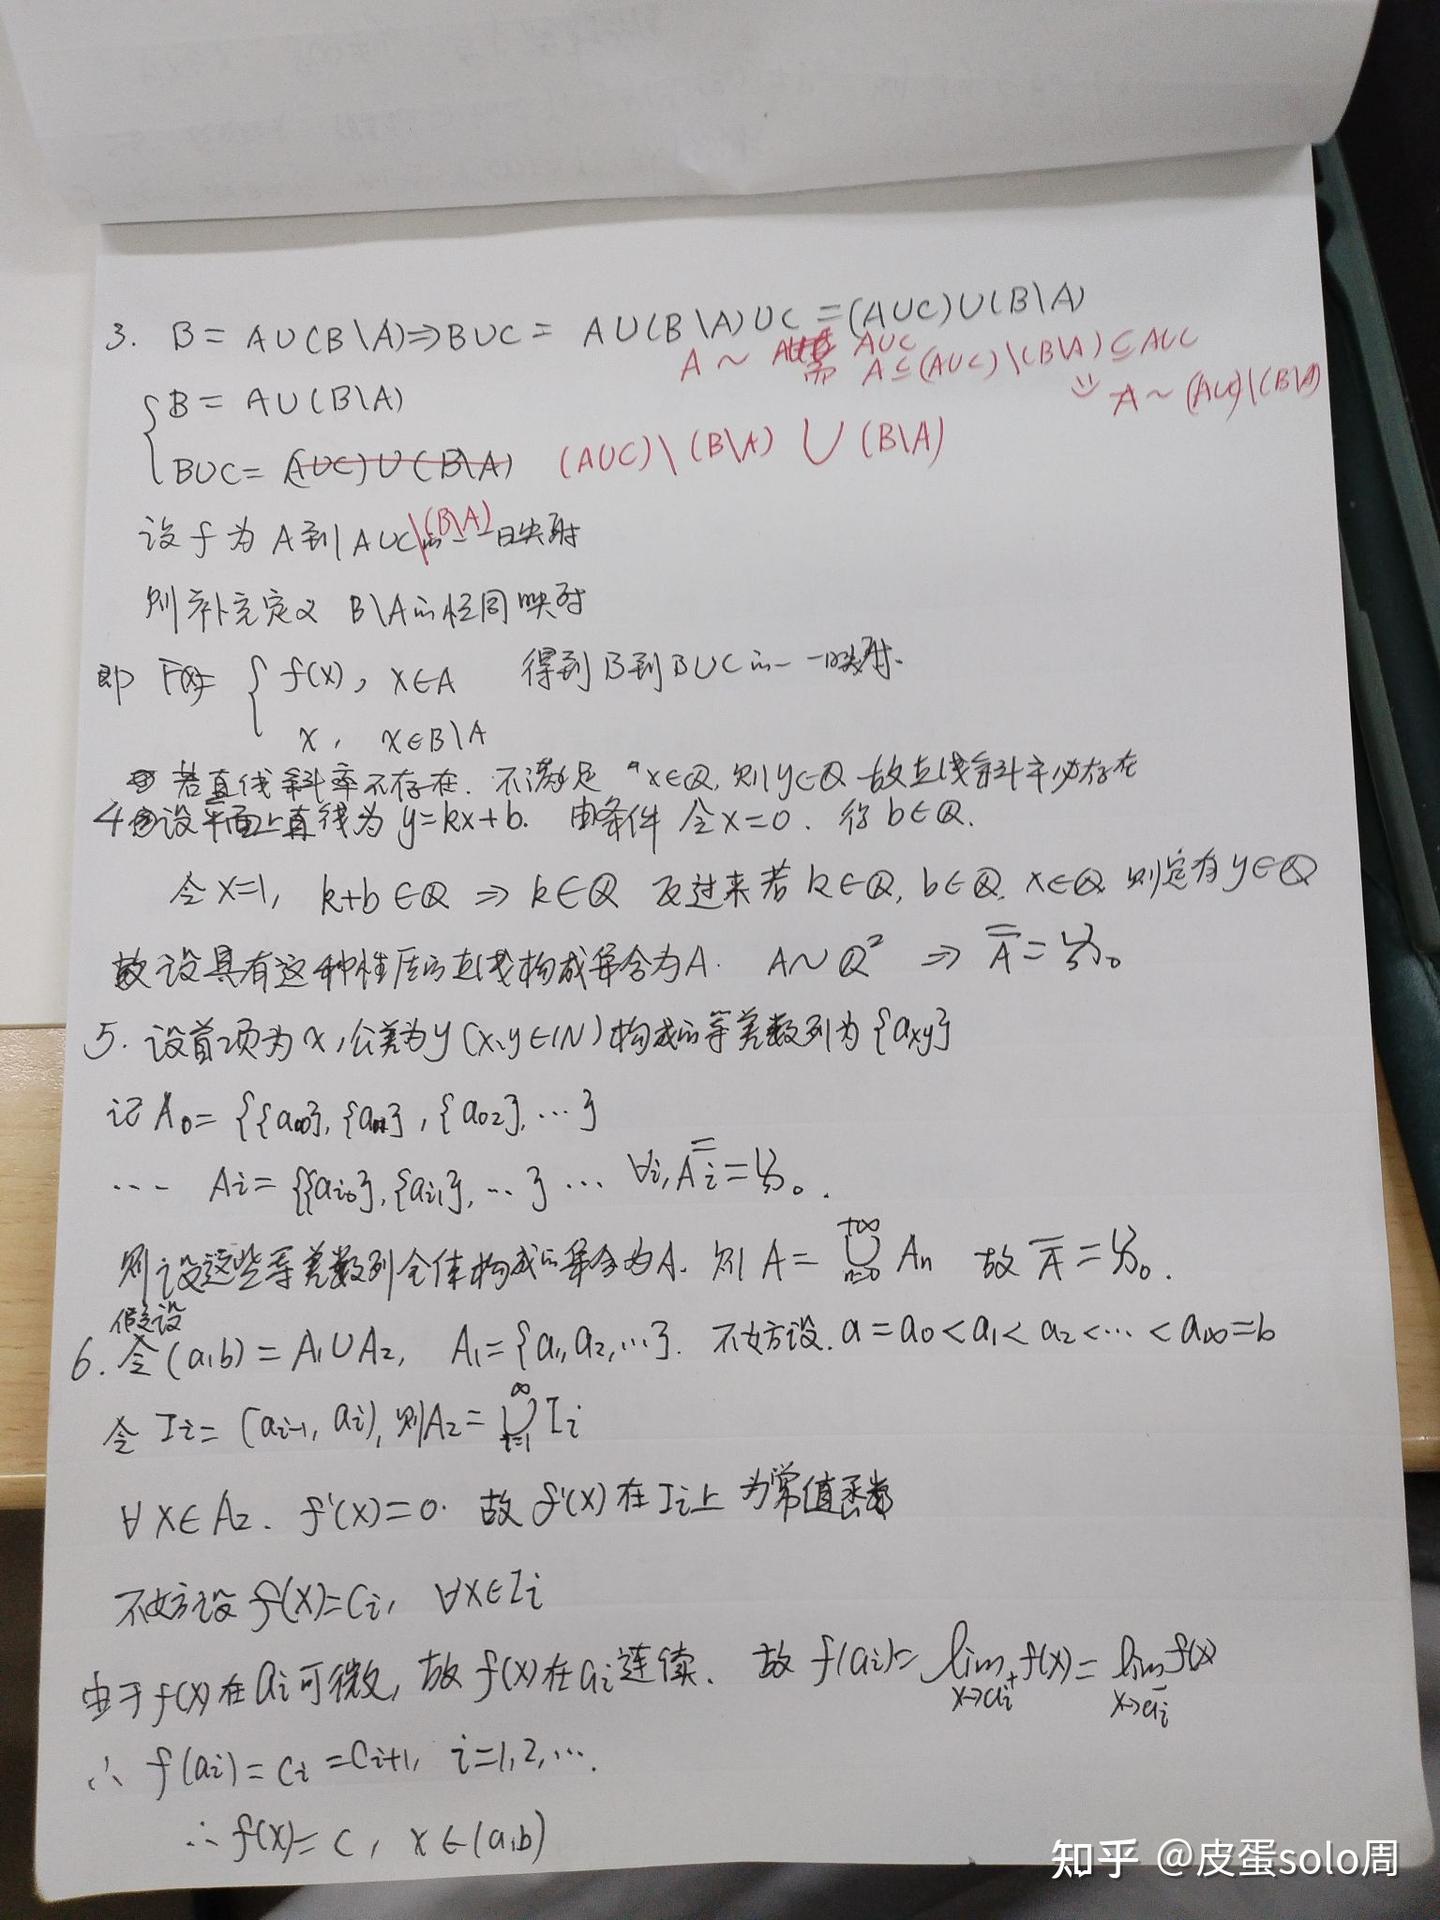 3. B = A∪(B\A)⇒B∪C = A∪(B\A)∪C =(A∪C)∪(B\A)
A ~ A∪C
需 A⊆(A∪C)\(B\A)⊆A∪C
A~(A∪C)\(B\A)
B = A∪(B\A)
B∪C= (A∪C)∪(B\A) (A∪C)\(B\A) ∪ (B\A)
设f为A到A∪C\(B\A)的一一映射
则补充定义 B\A的恒同映射
即 F(x)= { f(x), x∈A 得到B到B∪C的一一映射.
x, x∈B\A
若直线斜率不存在. 不满足 "x∈Q, 则y∈Q 故直线斜率必存在
4 设平面上直线为 y=kx+b. 由条件 令x=0. 得 b∈Q.
令x=1, k+b∈Q ⇒ k∈Q 反过来若k∈Q, b∈Q, x∈Q 则定有y∈Q
故设具有这种性质的直线构成集合为A. A~Q² ⇒ A̿=ℵ₀
5. 设首项为x,公差为y(x,y∈N)构成的等差数列为{axy}
记A₀={{a₀₀},{a₀₁},{a₀₂},…}
… Ai={{ai₀},{ai₁},…}… ∀i, A̿i=ℵ₀.
则设这些等差数列全体构成的集合为A. 则A= ∪ An 故 A̿=ℵ₀.
+∞
n=0
假设
6. 令(a,b)=A₁∪A₂, A₁={a₁,a₂,…}. 不妨设.a=a₀<a₁<a₂<…<a∞=b
令 Ii=(ai-1, ai), 则A₂= ∪ Ii
∞
i=1
∀x∈A₂. f'(x)=0. 故f'(x)在Ii上为常值函数
不妨设f(x)=Ci, ∀x∈Ii
由于f(x)在ai可微, 故f(x)在ai连续. 故 f(ai)= lim f(x)= lim f(x)
x→ai⁺ x→ai⁻
∴ f(ai)=Ci=Ci+1, i=1,2,….
∴f(x)=C, x∈(a,b)
知乎 @皮蛋solo周